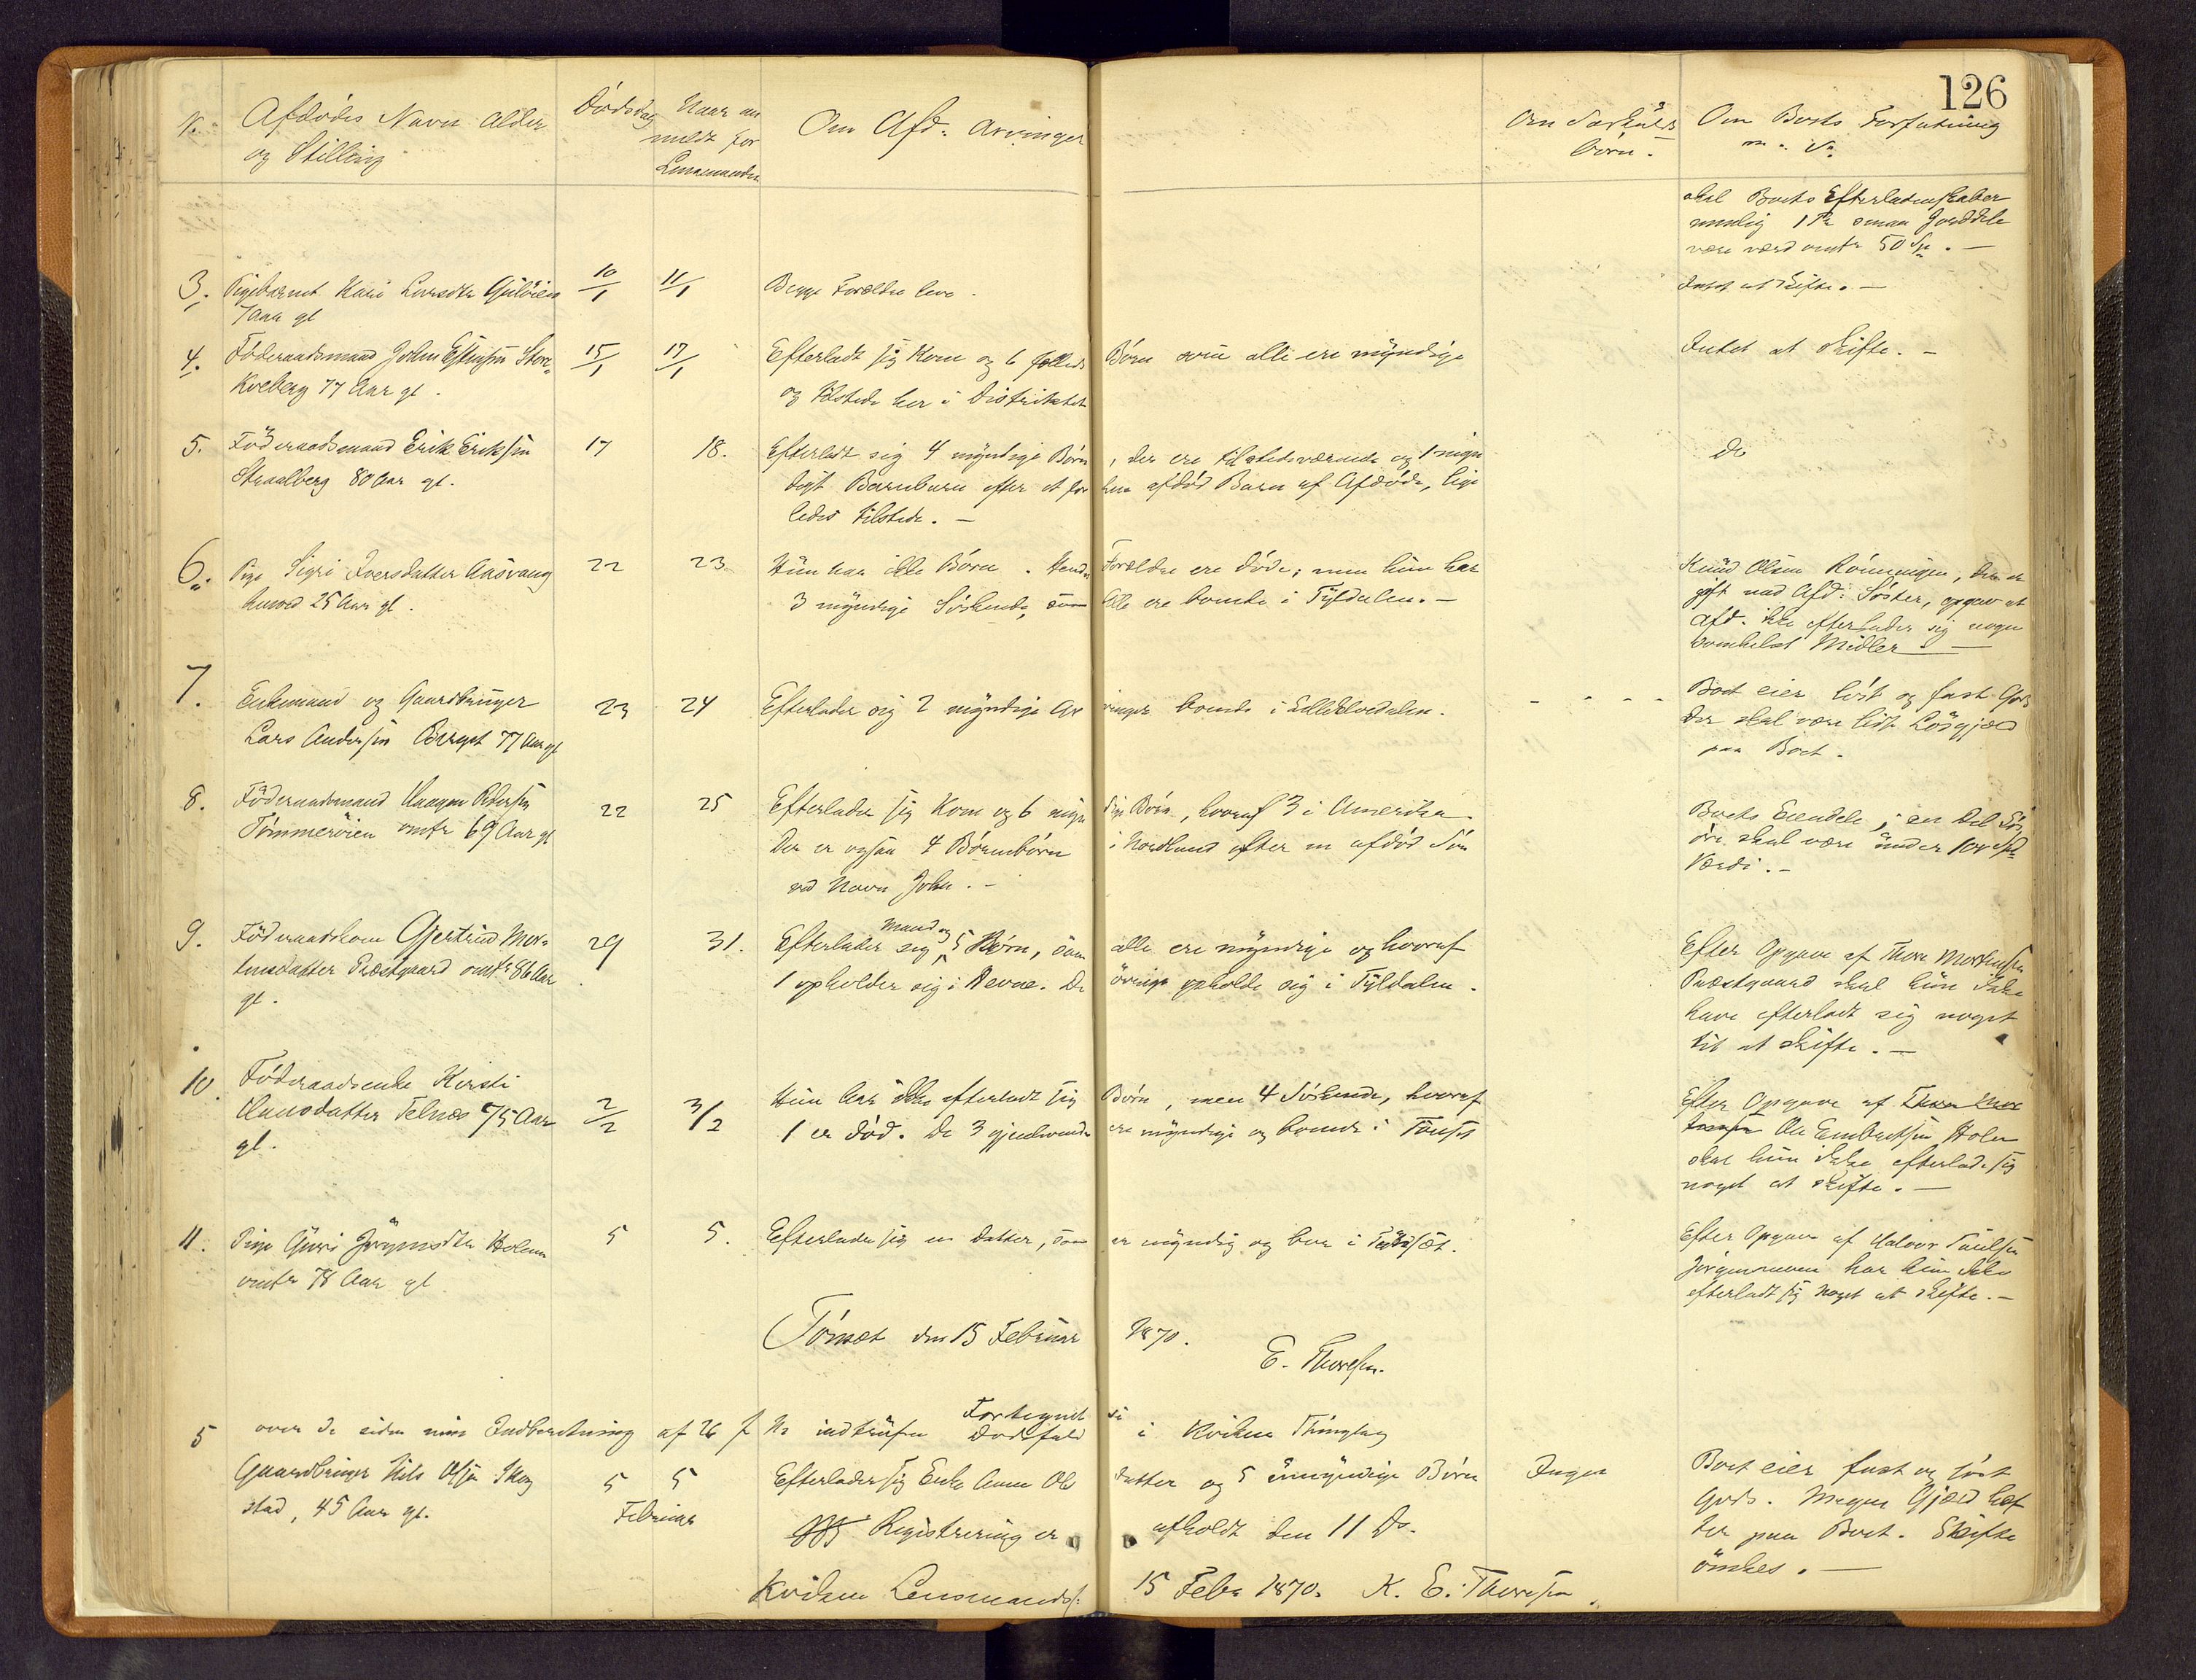 126
No. Afdødes Navn Alder og Stilling
Dødsdag
Naar anmeldt for Lensmanden
Om Afd: Arvinger
Om Særkulds børn.
Om Boets Forfatning m. v.
skal Boets Efterladenskaber
nemlig 1 Pr smaa Jorddele
være værd omtr 50 Sp. —
3. Pigebarnet Kari Larsdtr
7 Aar gl
10/1 11/1 Begge Forældre leve.
Intet at skifte. —
4. Föderaadsmand John Estensen Stor-
Kveberg 77 Aar gl.
15/1 17/1 Efterladt sig Kone og 6 fælleds Börn som alle ere myndige
og tilstede her i Distriktet
Intet at skifte. —
5. Föderaadsmand Erik Eriksen
Straalberg 80 Aar gl.
17 18. Efterladt sig 4 myndige Börn, der ere tilstedeværende og 1 myn
digt Barnebarn efter et för hen afdöd Barn af Afdöde, lige
ledes tilstede. —
Do
6. Pige Sigri Iversdatter Aasvang
25 Aar gl.
22 23 Hun har ikke Börn. Hendes Forældre ere döde; men hun har
3 myndige Söskende, som alle ere boende i Tyldalen. —
Knud Olsen Rönningen, der er
gift med Afd: Söster, opgav at
Afd. ikke efterlader sig nogen
somhelst Midler. —
7. Enkemand og Gaardbruger
Lars Andersen Berget 77 Aar gl
23 24 Efterlader sig 2 myndige Ar vinger boende i Lille Elvedalen.
- - - -
Boet eier löst og fast Gods
der skal være lidt Lösgjæld
paa Boet.
8. Föderaadsmand Haagen Pedersen
Tömmeröien omtr 69 Aar gl
22 25 Efterlader sig Kone og 6 myn dige Börn, hvoraf 3 i Amerika.
Der er ogsaa 4 Börnebörn i Nordland efter en afdöd Sön
ved Navn John. —
Boets Eiendele, en Del Lös
öre skal være under 100 Spd
Værdi. —
9. Föderaadskone Gjertrud Mor-
tensdatter Præstgaard omtr 86 Aar
gl.
29 31. Efterlader sig Mand og 5 Börn, som alle ere myndige og hvoraf
1 opholder sig i Nevne. De övrige opholde sig i Tyldalen.
Efter Opgave af Thore Mortensen
Præstgaard skal hun ikke
have efterladt sig noget
til at skifte. —
10. Föderaadsenke Kirsti
Hansdatter Telnæs 75 Aar
gl.
2/2 3/2 Hun har ikke efterladt sig Börn, men 4 Söskende, hvoraf
1 er död. De 3 gjenlevende ere myndige og boende i
Efter Opgave af Thore Mor
tensen Ole Embretsen Holen
skal hun ikke efterlade sig
noget at skifte. —
11. Pige Guri Jörgensdtr Holen
omtr 78 Aar gl
5 5. Efterlader sig en Datter, som er myndig og bor i
Efter Opgave af Halvor Paulsen
Jörgenmoen har hun ikke
efterladt sig noget at skifte. —
Tönset den 15 Februar 1870.
E. Thoresen.
Fortegnelse
over de siden min Indberetning af 26 f M indtrufne Dödsfald i Kvikne Thinglag
5 Gaardbruger Nils Olsen Skog
stad, 45 Aar gl.
5 5 Februar
Efterlader sig Enke Anne Ols datter og 5 umyndige Börn
Registrering er afholdt den 11 Ds.
Ingen
Boet eier fast og löst
Gods. Megen Gjæld hef
ter paa Boet. Skifte
önskes. —
Kvikne Lensmandsf. 15 Febr 1870. K. E. Thoresen.